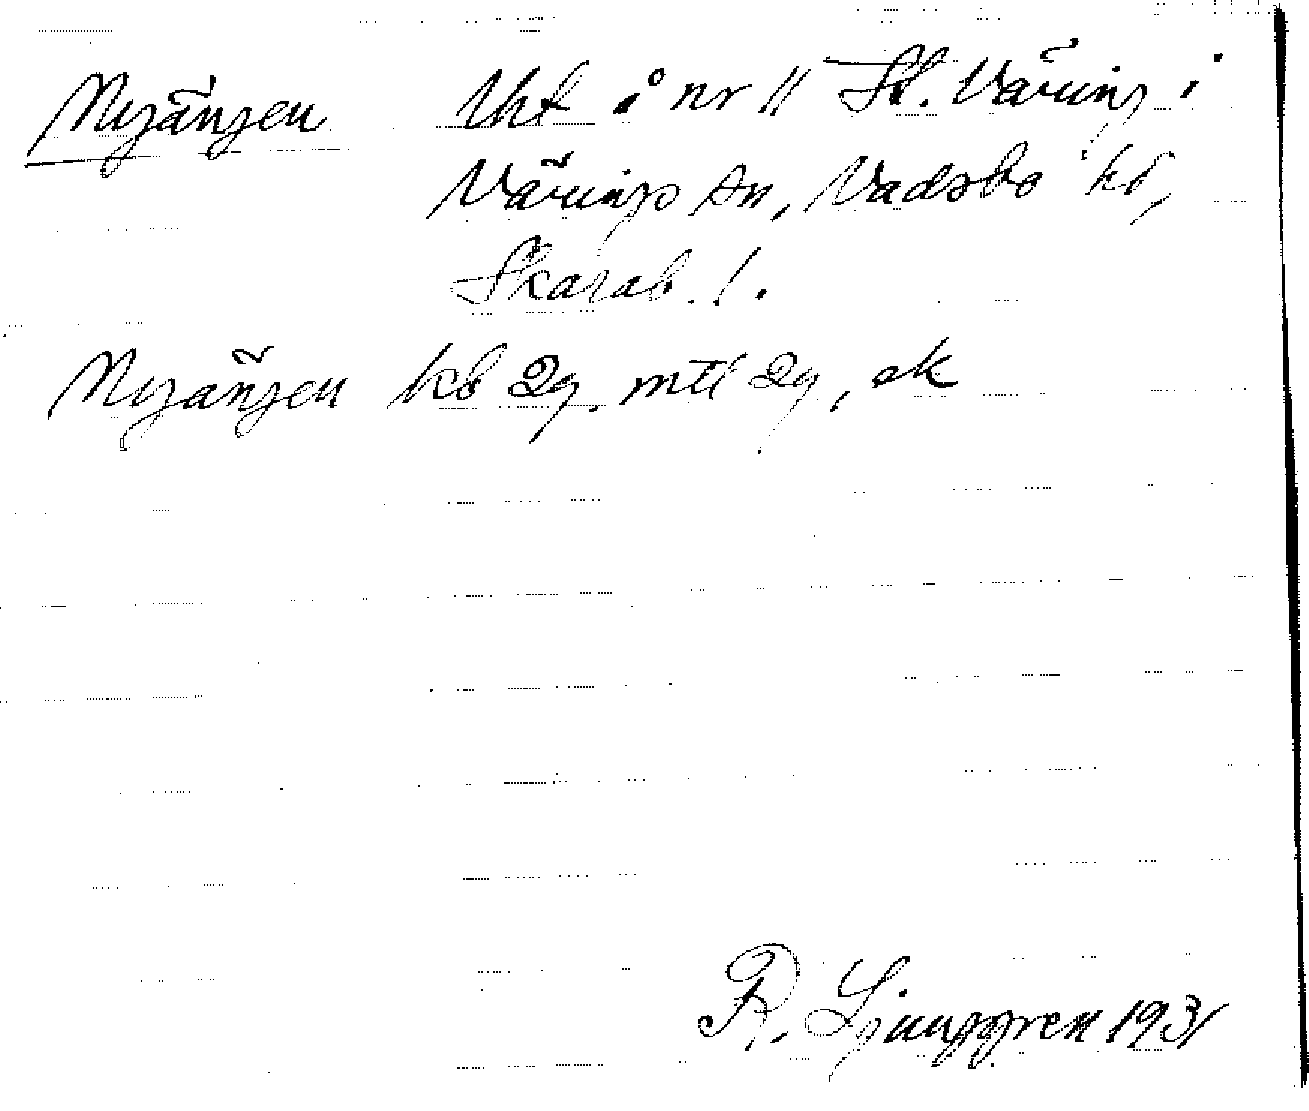 Nyängen Uht å nr 11 St. Väring i
Värings sn, Vadsbo hd,
Skarab. l.
Nyängen kb 29, mtl 29, ek
R. Ljunggren 1931